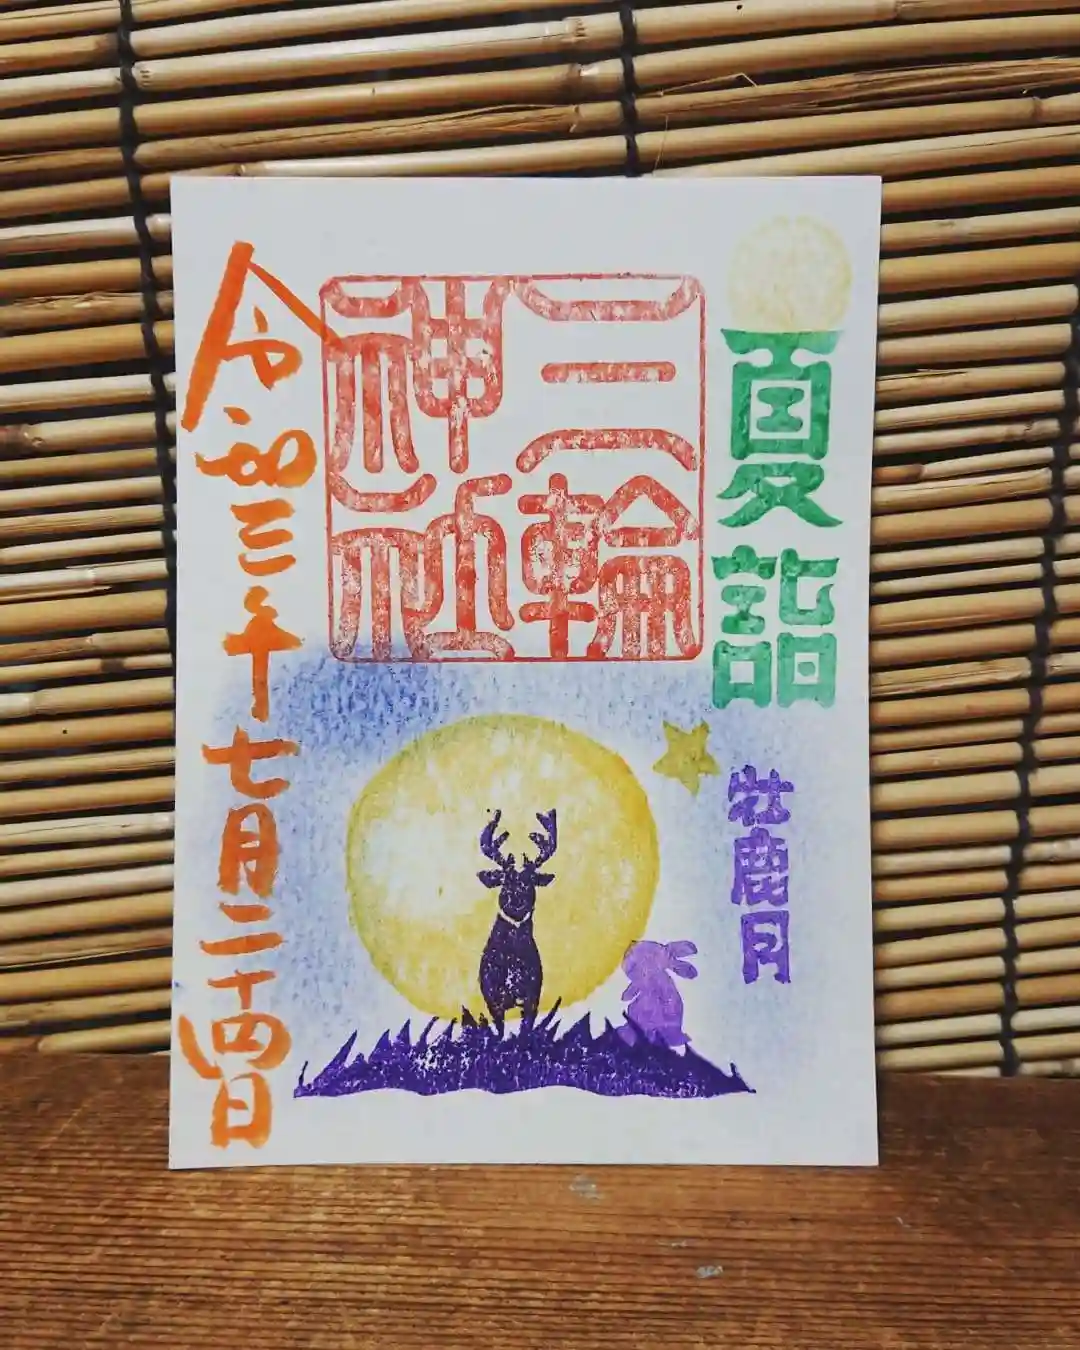 夏詣
牡鹿月
三輪
神社
令和三年七月二十四日